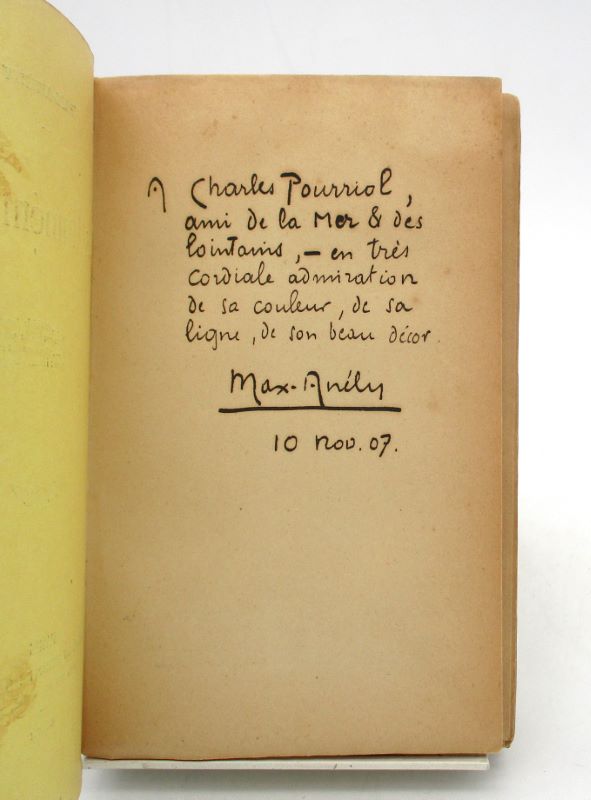 A Charles Pourriol,
ami de la Mer & des
lointains, – en très
cordiale admiration
de sa couleur, de sa
ligne, de son beau décor.
Max-Anély
10 nov. 07.